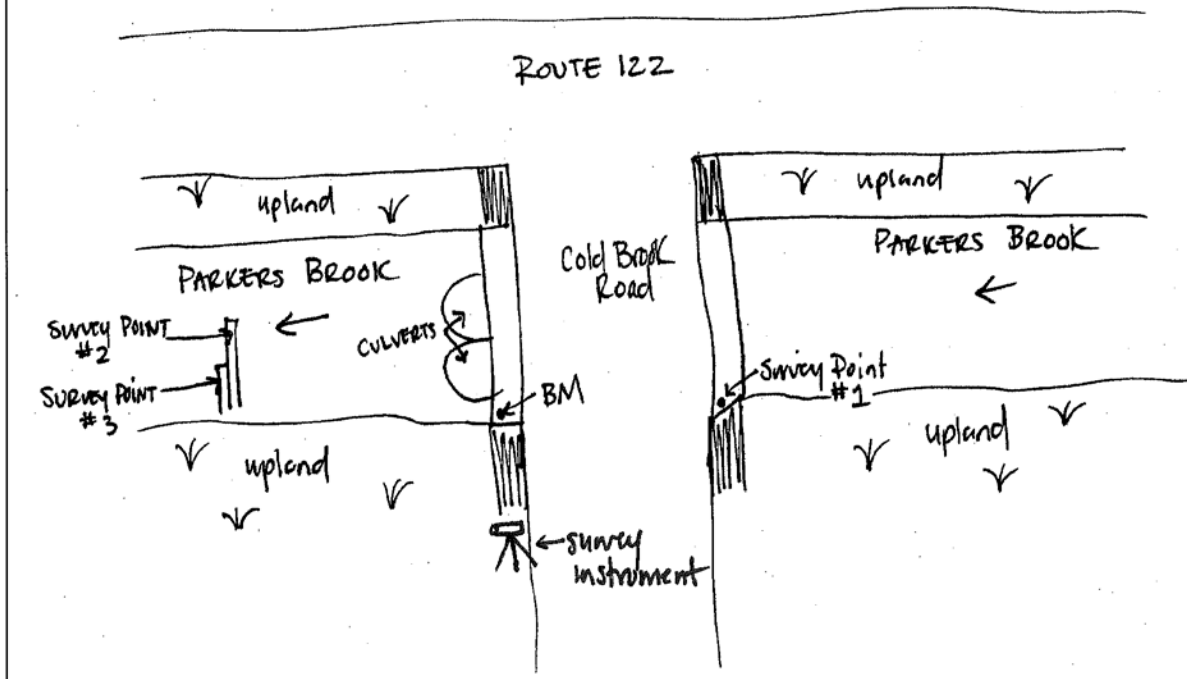 ROUTE 122
upland
upland
PARKERS BROOK
Cold Brook
Road
PARKERS BROOK
CULVERTS
Survey POINT
#2
SURVEY POINT
#3
BM
Survey Point
#1
upland
upland
survey
instrument